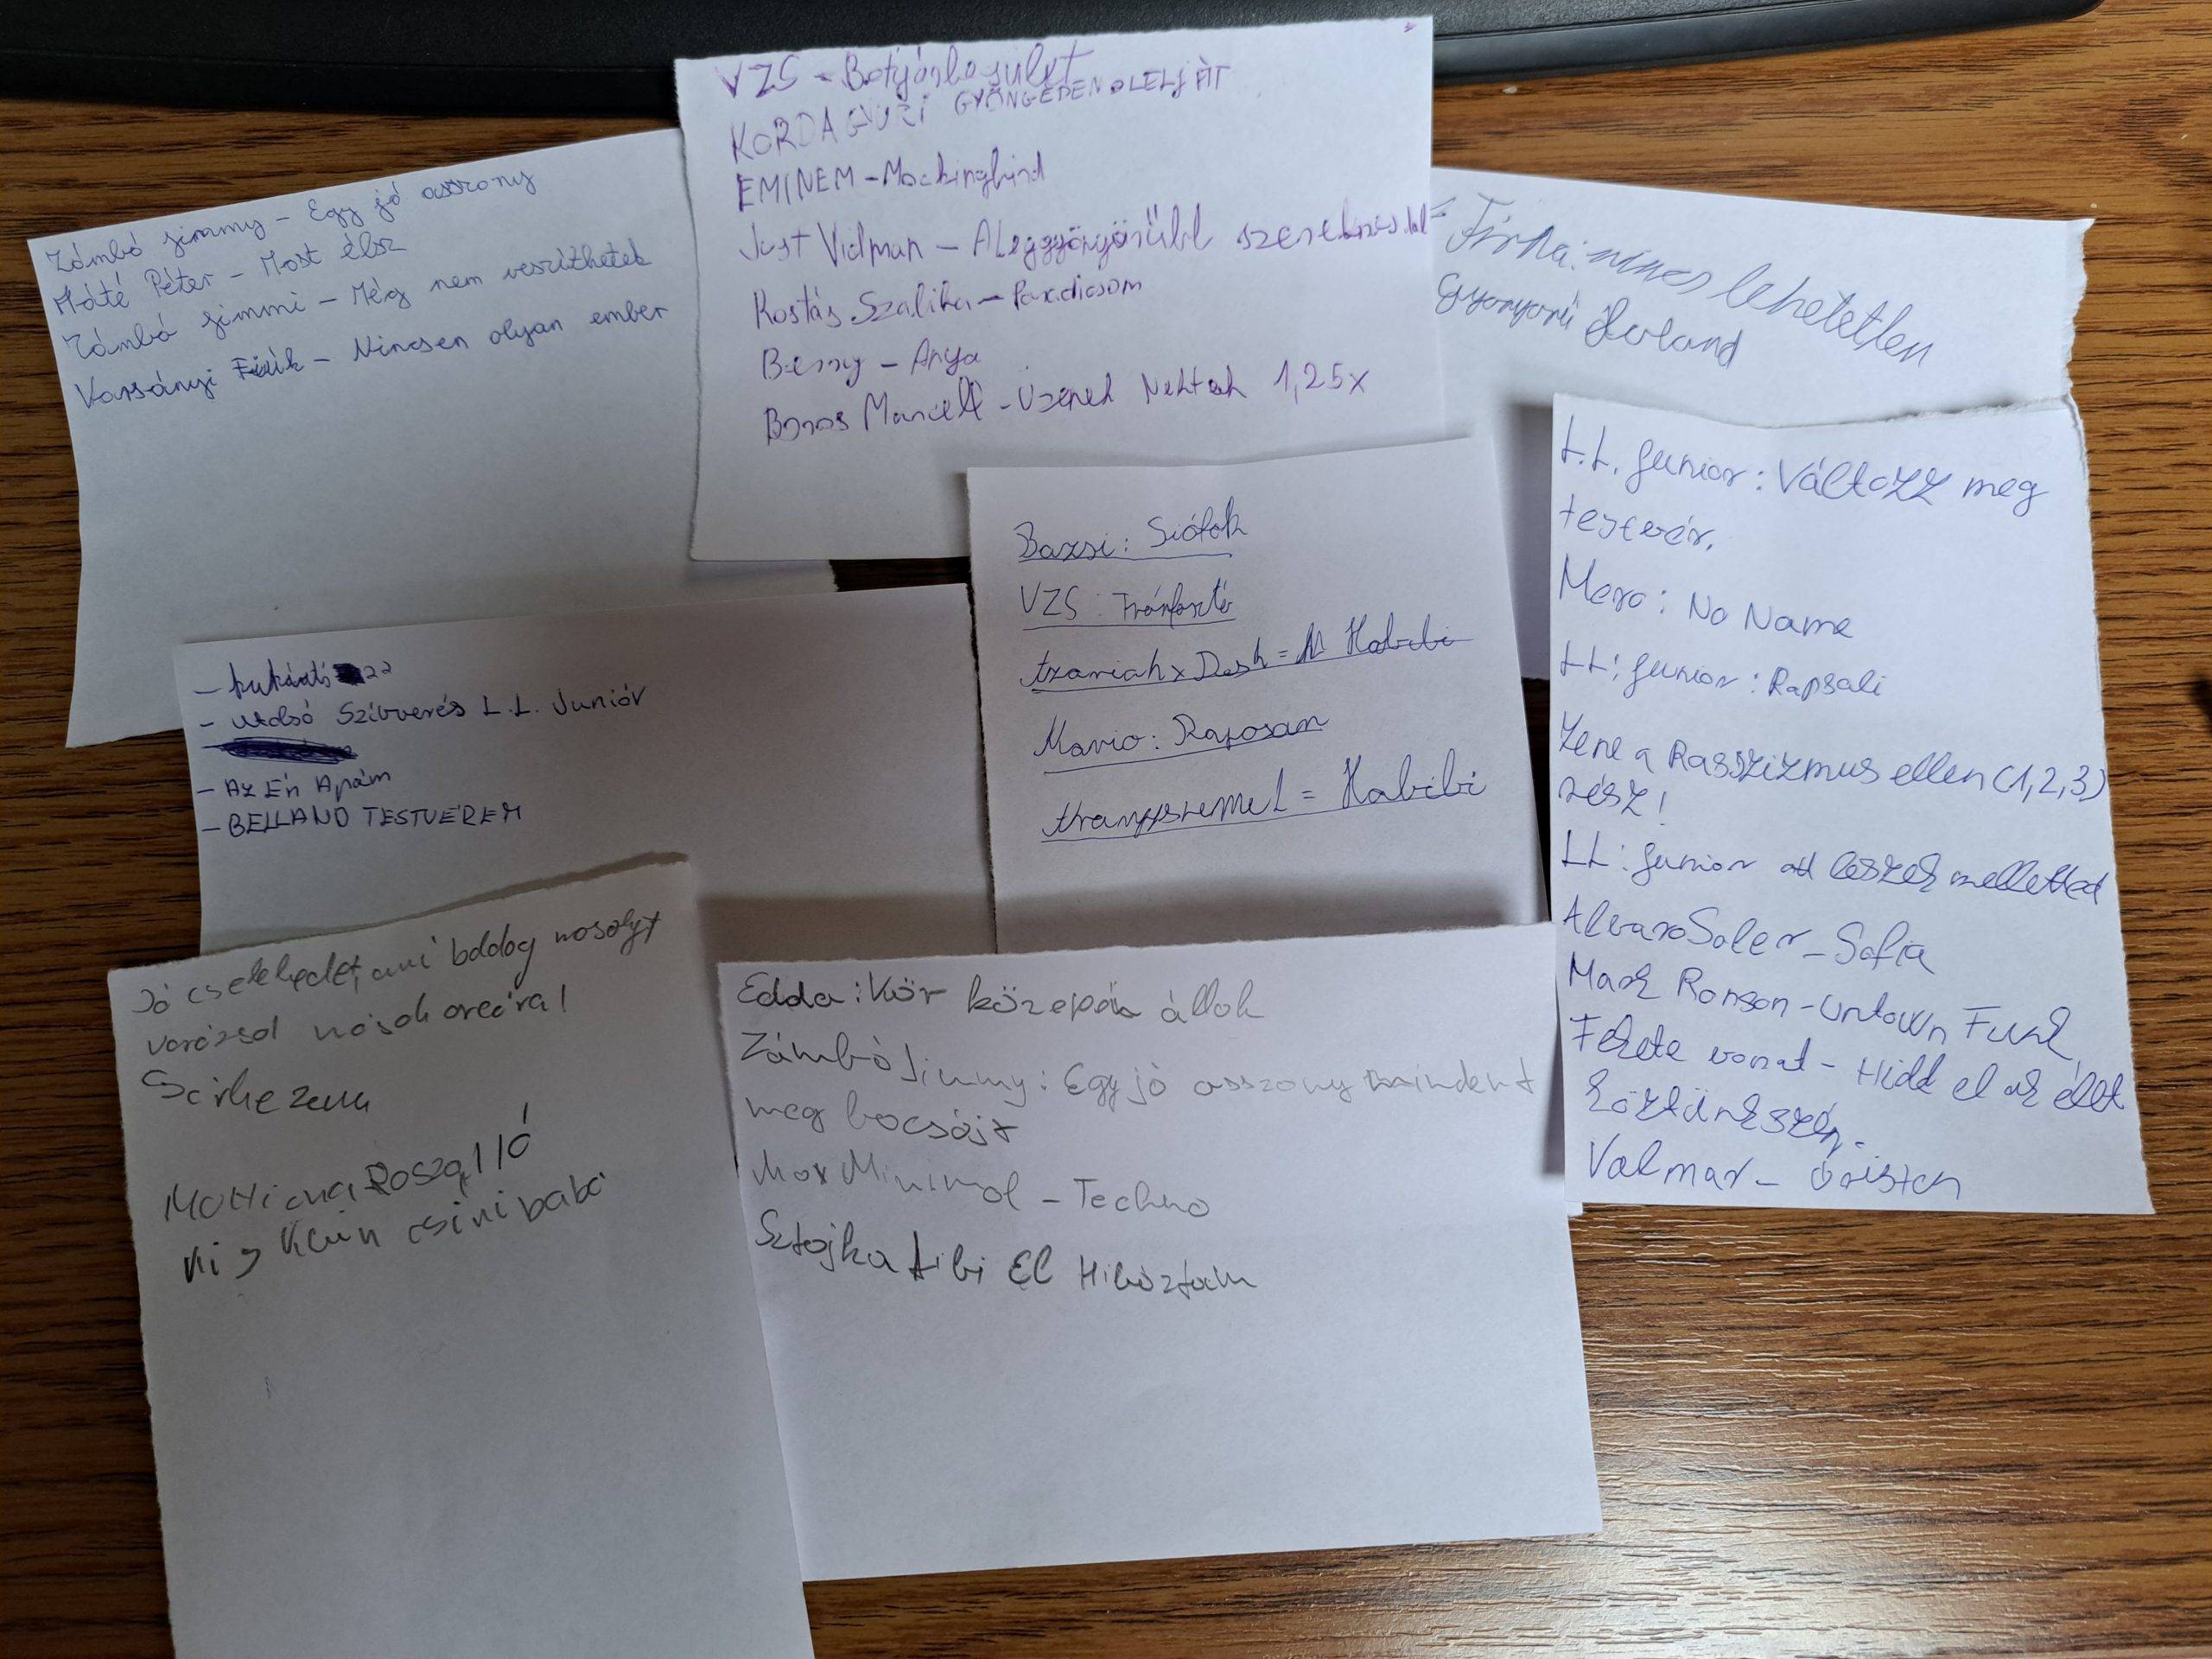 Zámbó jimmy - Egy jó asszony
Máté Péter - Most élsz
Zámbó jimmi - Még nem veszíthetek
Varsányi - Nincsen olyan ember
VZS - 
KORDA GYURI GYÖNGÉDEN ÖLELJ ÁT
EMINEM - Mockingbird
Just Vidman - A leggyönyörűbb szerelmes dal
Kostás Szalika - Paradicsom
Berry - Anya
Boros Marcell - Üzenek Nektek 1,25x
nincs lehetetlen
Gyönyörű
L.L. Junior: Változz meg
testvér.
Mero: No Name
LL: Junior: Rapsali
Zene a Rasszizmus ellen (1,2,3)
rész!
LL: Junior ott leszek melletted
Alvaro Soler - Sofia
Mark Ronson - Untown Funk
Fekete vonat - Hidd el az élet
köztünk szép.
Valmar - úristen
Bazsi: Siófok
VZS:
azariah x Desh = Habibi
Mario: Raposan
= Habibi
- utolsó Szívverés L.L. Juniór
- Az Én Apám
- BELLAND TESTVÉREM
Jó cselekedet, ami boldog mosolyt
varázsol mások arcára!
Scirke zene
ki, Klein csinibaba
Edda: Kör közepén állok
Zámbó Jimmy: Egy jó asszony mindent
meg bocsájt
Max Minimal - Techno
Sztojka tibi El Hibáztam